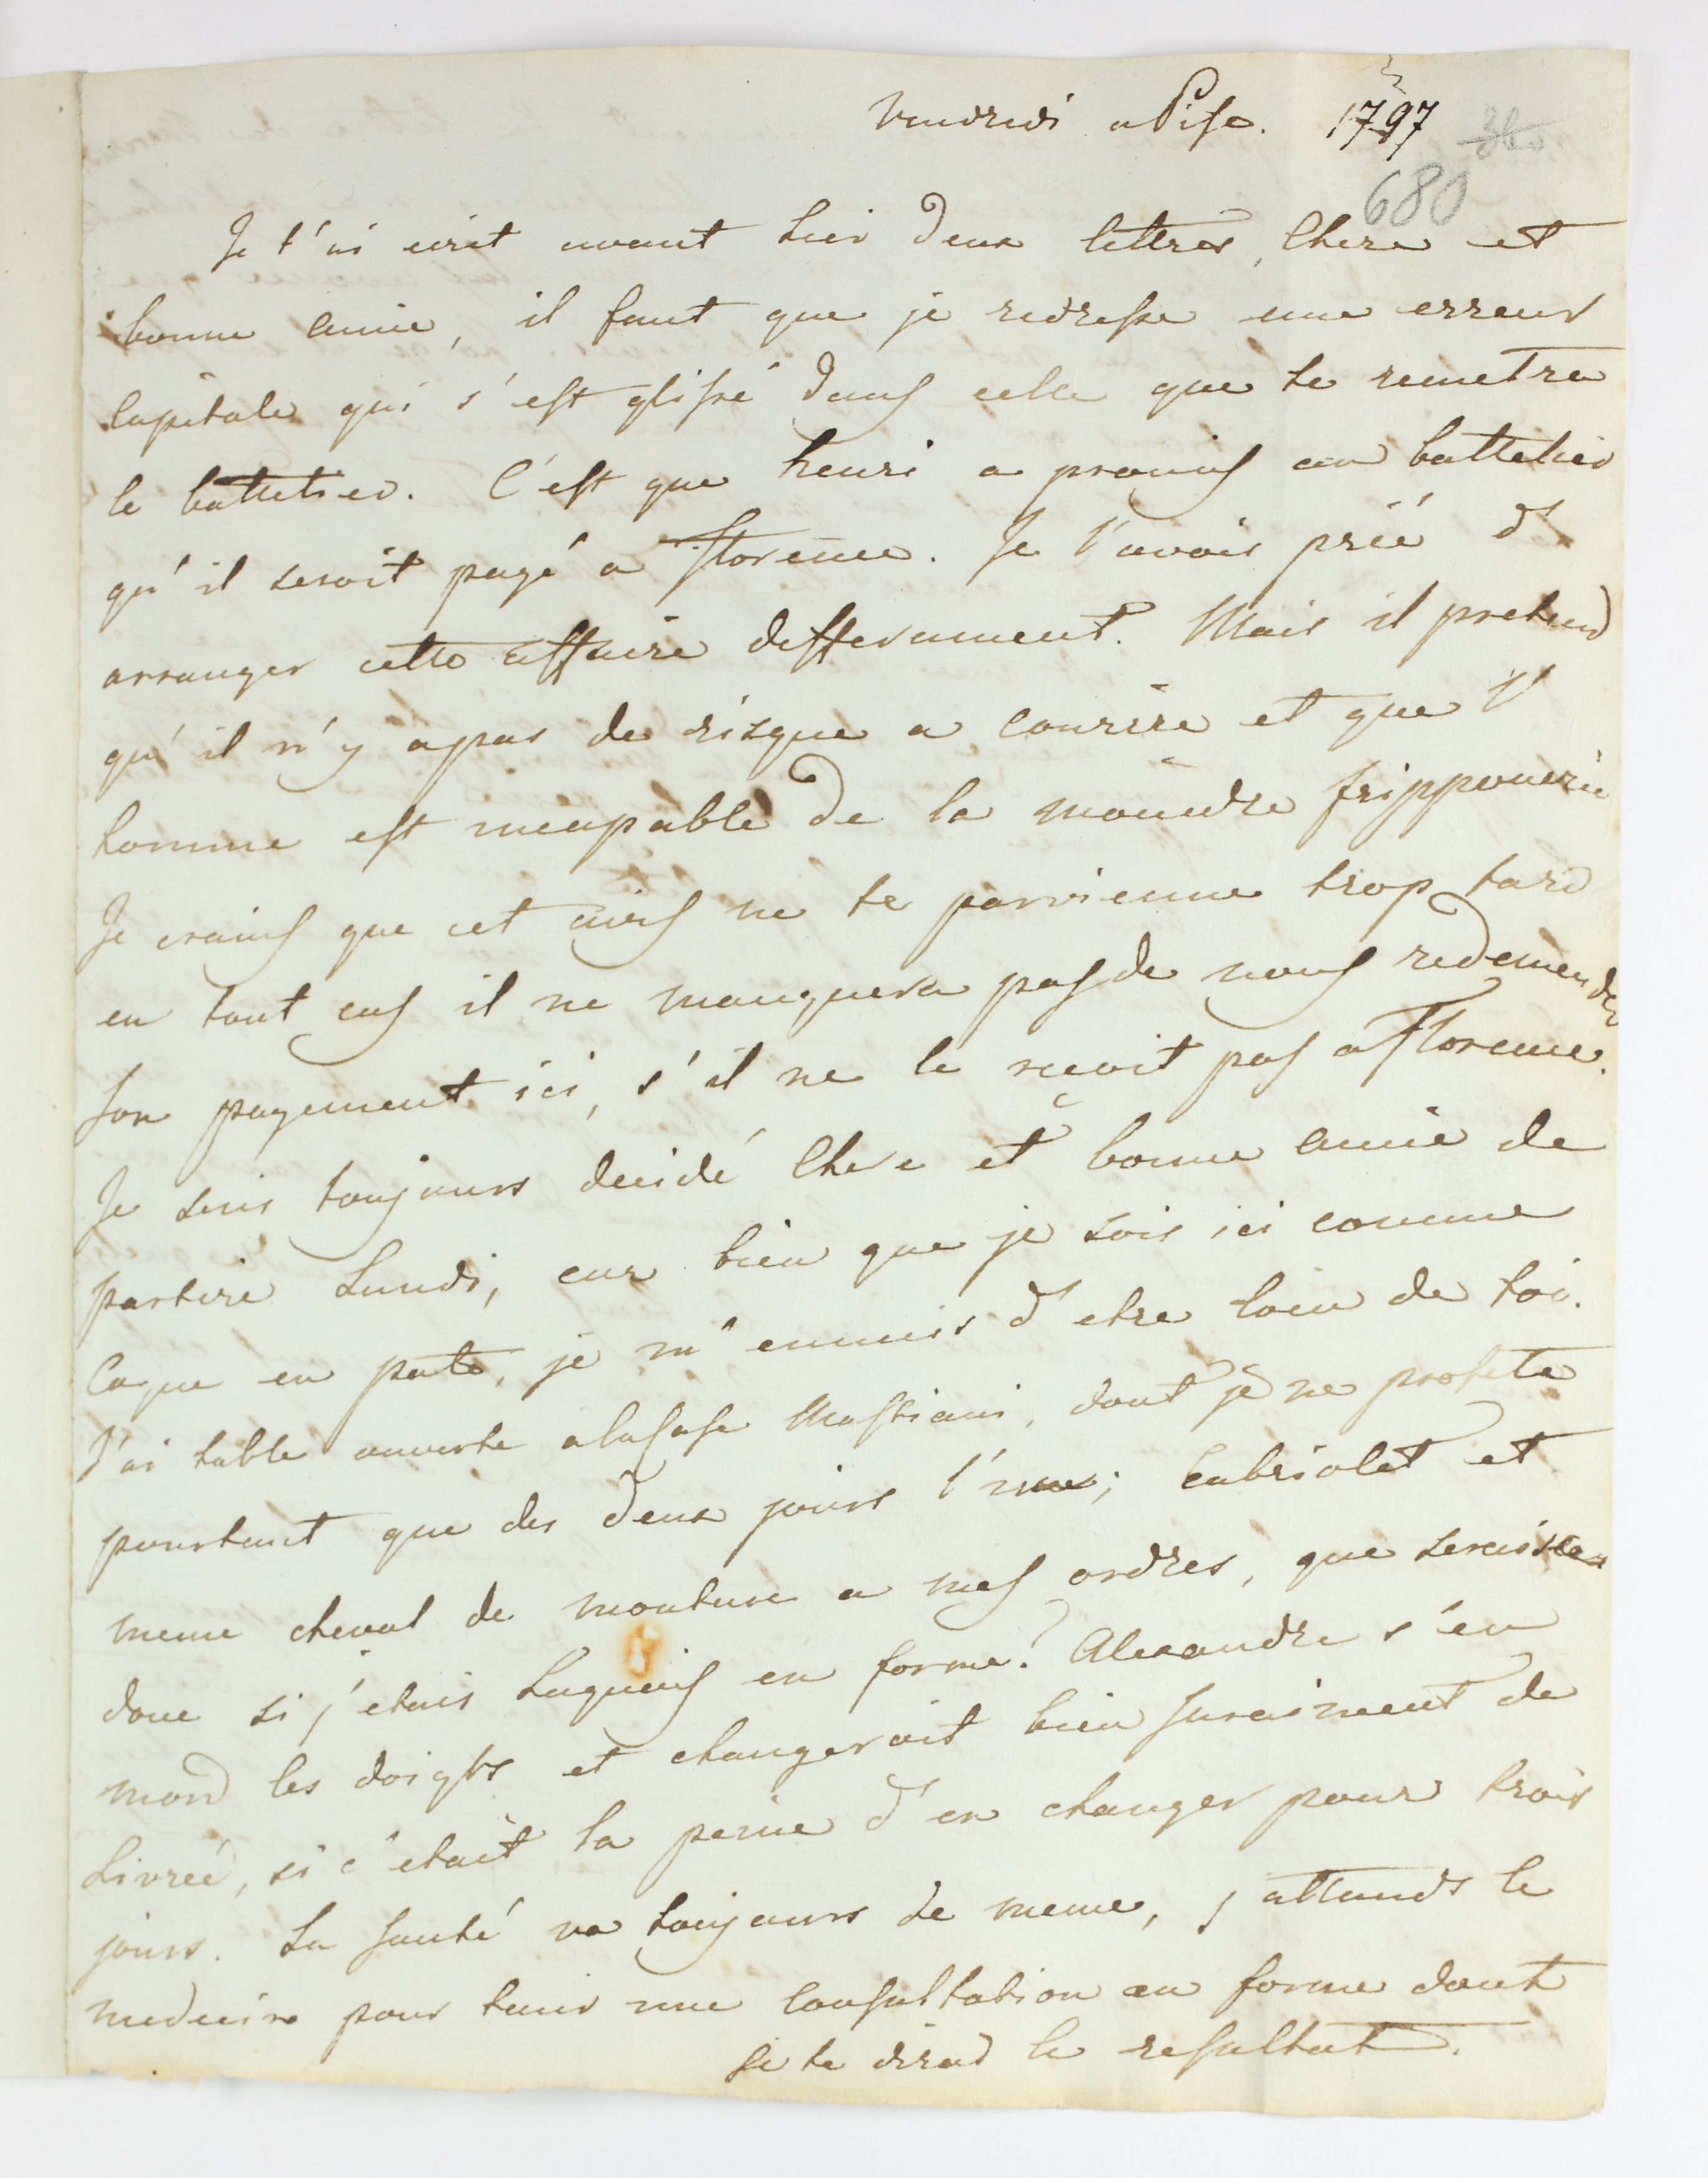 Vendredi a Pise. 1797 360
680
Je t'ai ecrit avant hier deux lettres, Chere et
bonne amie, il faut que je redresse une erreur
Capitale qui s'est glissé dans celle que te remetra
le battelier. C'est que henri a promis au battelier
qu'il seroit payé a Florence. Je l'avois prié d'
arranger cette affaire differament. Mais il pretend
qu'il n'y a pas de risque a courrire et que l'
homme est incapable de la moindre fripponerie
Je crains que cet avis ne te parvienne trop tard
en tout cas il ne manquera pas de nous redemender
son payement ici, s'il ne le recoit pas a Florence.
Je suis toujours decidé Chere et bonne amie de
partire Lundi, car bien que je sois ici comme
Coque en pate, je m'ennuis d'etre loin de toi.
J'ai table ouverte a la Casa Mastiani, dont je ne profite
pourtant que des deux jours l'un; Cabriolet et
meme cheval de monture a mes ordres, que serais ce
donc si j'etais Luquois en forme? Alexandre s'en
mord les doigts et changeroit bien suraiment de
Livreé, si c'etait la peine d'en changer pour trois
jours. La santé va toujours de meme, j'attends le
medecin pour tenir une Consultation en forme dont
je te dirai le resultat.